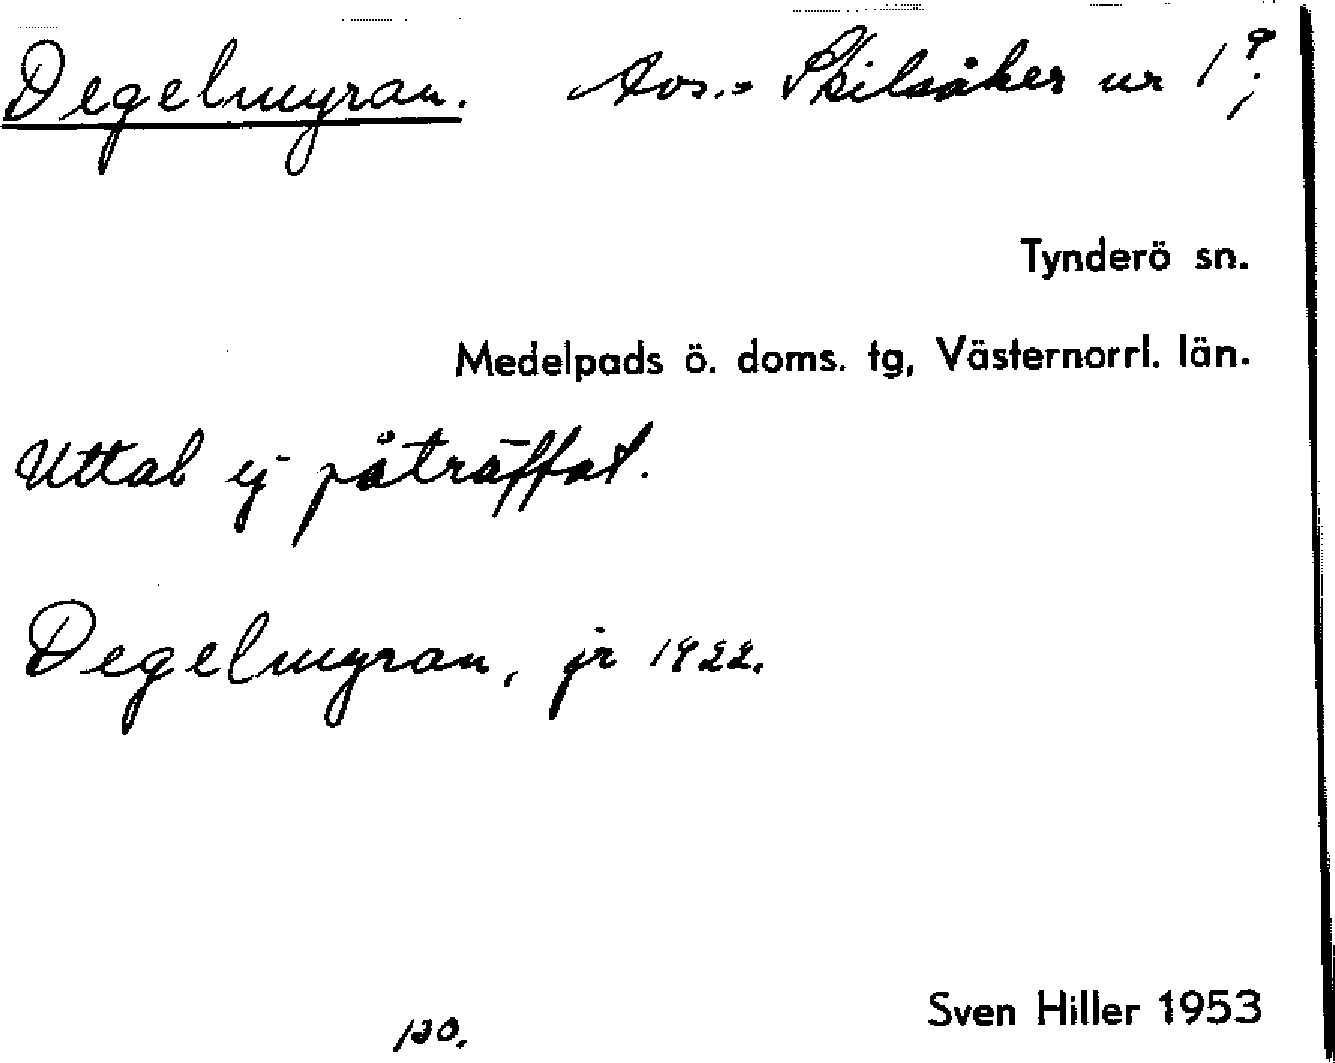 Degelmyran. Avs.: Skilsåker nr 1⁹;
Tynderö sn.
Medelpads ö. doms. tg, Västernorrl. län.
Uttal ej påträffat.
Degelmyran, jr 1822.
Sven Hiller 1953
130.